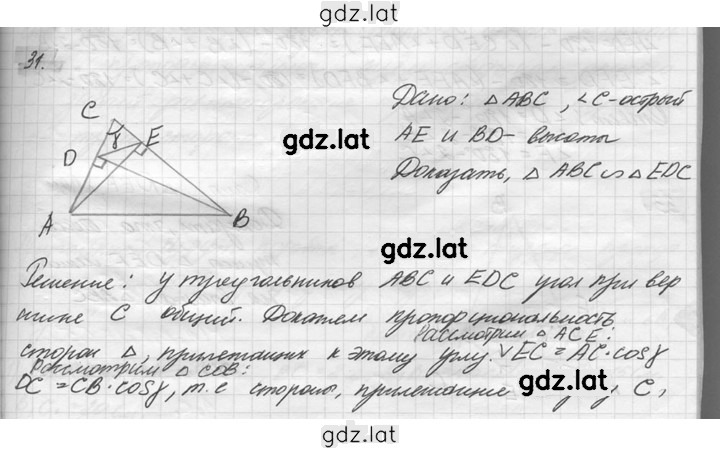 gdz.lat
31.
C
γ
E
D
A
B
Дано: △ABC, ∠C-острый
AE и BD- высоты
Доказать, △ABC∽△EDC
gdz.lat
gdz.lat
Решение: у треугольников ABC и EDC угол при вер
шине C общий. Докажем пропорциональность
Рассмотрим △ACE:
сторон △, прилежащих к этому углу. √EC = AC·cosγ
Рассмотрим △COB:
DC = CB·cosγ, т.е стороны, прилежащие C,
gdz.lat
gdz.lat